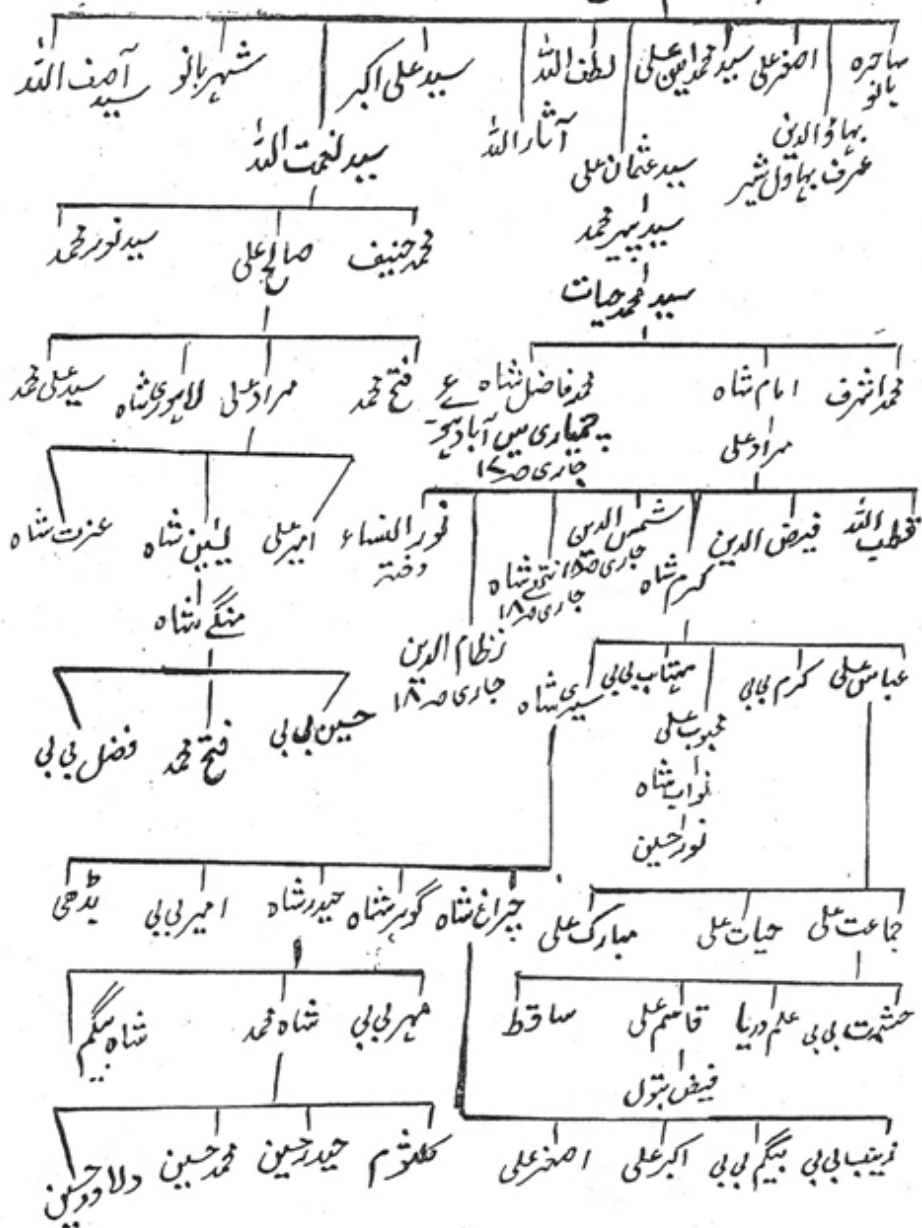 ساجرہ بانو
اصغر علی
سید محمد امین علی
لطف اللہ
سید علی اکبر
شہر بانو
سید آصف اللہ
بہاؤالدین
عرف بہاول شیر
سید عثمان علی
آثار اللہ
سید نعمت اللہ
سید پیر محمد
سید محمد حیات
محمد حنیف
صالح علی
سید نور محمد
محمد اشرف
امام شاہ
محمد فاضل شاہ
چمیاری میں آباد ہوئے
جاری صہ
فتح محمد
مراد علی
لاہوری شاہ
سید علی محمد
مراد علی
قطب اللہ
فیض الدین
کرم شاہ
شمس الدین
جاری صہ ۱۸
شاہ
جاری صہ ۱۸
نظام الدین
جاری صہ ۱۸
نور النساء
دختر
امیر علی
یٰسین شاہ
عزت شاہ
منگے شاہ
عباس علی
کرم بی بی
محبوب علی
مہتاب بی بی
سیری شاہ
نواب شاہ
نور حسین
حسین بی بی
فتح محمد
فضل بی بی
جماعت علی
حیات علی
مبارک علی
چراغ شاہ
گوہر شاہ
حیدر شاہ
امیر بی بی
بڈھی
حشمت بی بی
علم دریا
قاسم علی
ساقط
فیض بتول
مہر بی بی
شاہ محمد
شاہ بیگم
زینب بی بی
بیگم بی بی
اکبر علی
اصغر علی
کلثوم
حیدر حسین
محمد حسین
دلاور حسین